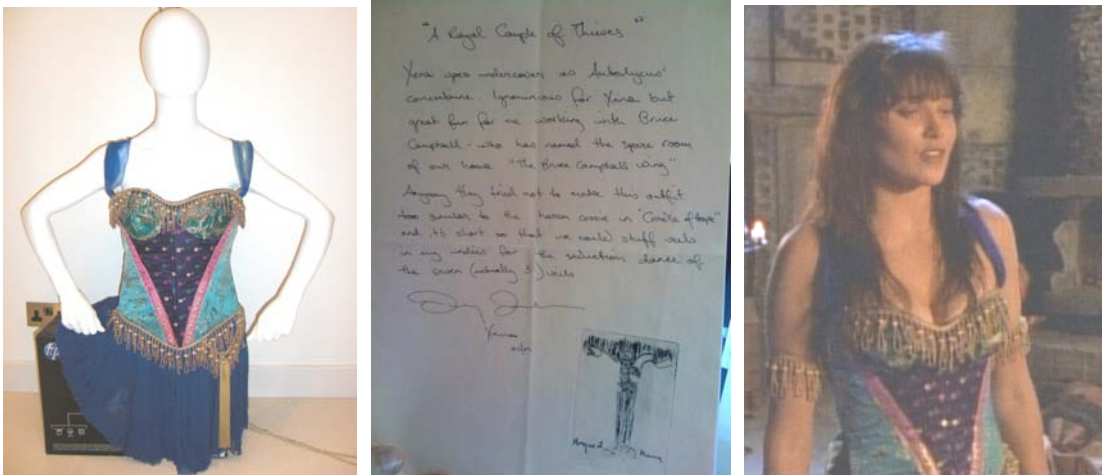 hp
"A Royal Couple of Thieves"
Xena goes undercover as Autolycus'
concubine. Ignominious for Xena but
great fun for me working with Bruce
Campbell - who has named the spare room
of our house "The Bruce Campbell Wing"
Anyway they tried not to make this outfit
too similar to the harem cossie in "Cradle of Hope"
and it's short so that we could stuff veils
in my undies for the seduction dance of
the seven (actually 3) veils
Xena